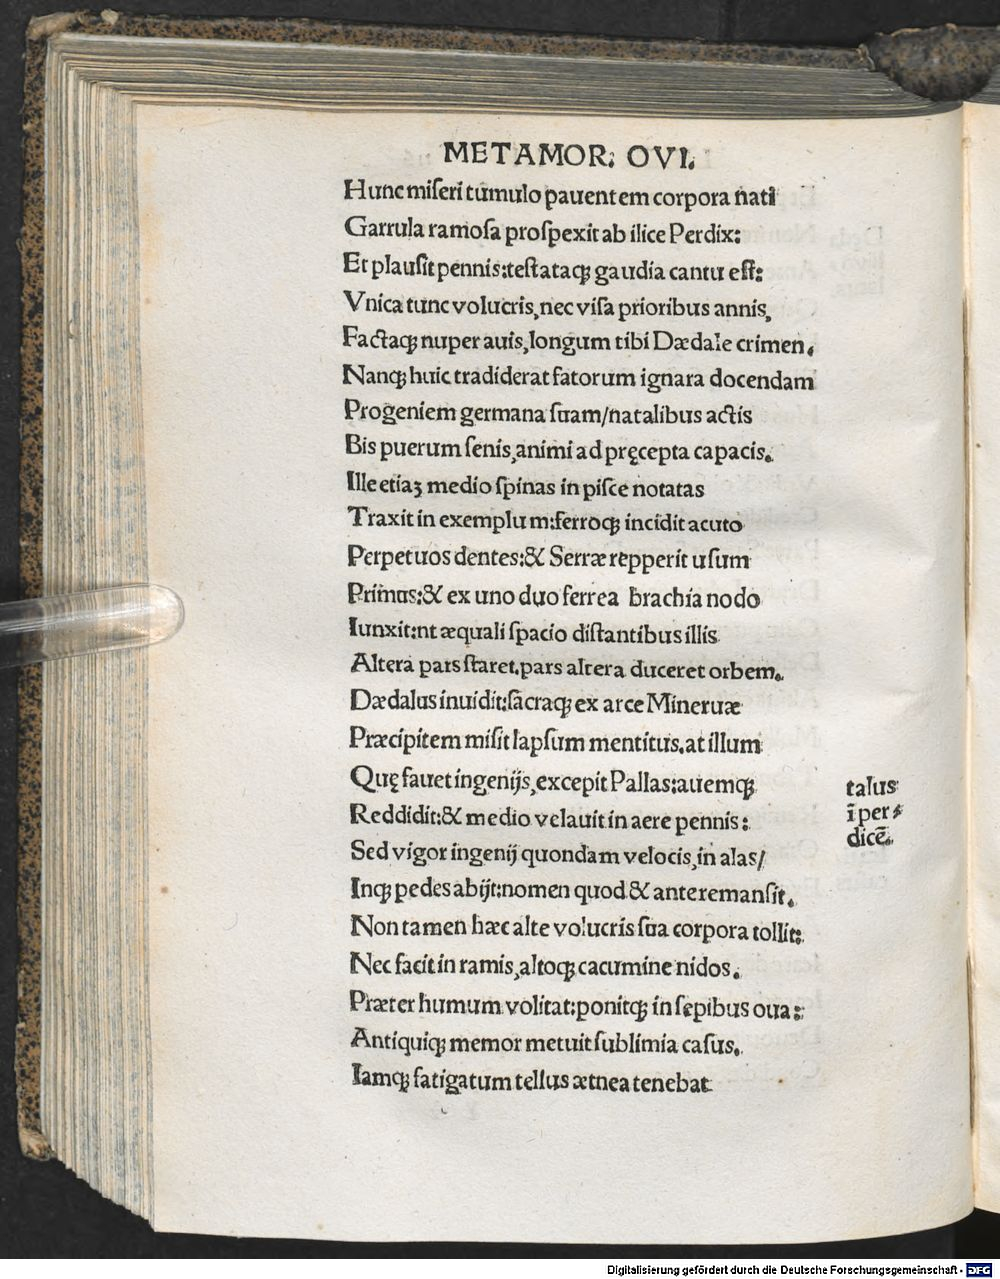 METAMOR: OVI.
Hunc miseri tumulo pauentem corpora nati
Garrula ramosa prospexit ab ilice Perdix:
Et plausit pennis:testataqꝫ gaudia cantu est:
Vnica tunc volucris,nec visa prioribus annis,
Factaqꝫ nuper auis,longum tibi Dædale crimen.
Nanqꝫ huic tradiderat fatorum ignara docendam
Progeniem germana suam/natalibus actis
Bis puerum senis,animi ad pręcepta capacis.
Ille etiaꝫ medio spinas in pisce notatas
Traxit in exemplum:ferroqꝫ incidit acuto
Perpetuos dentes:& Serræ repperit usum
Primus:& ex uno duo ferrea brachia nodo
Iunxit:nt æquali spacio distantibus illis
Altera pars staret.pars altera duceret orbem.
Dædalus inuidit:sacraqꝫ ex arce Mineruæ
Præcipitem misit lapsum mentitus.at illum
Quę fauet ingenijs,excepit Pallas:auemqꝫ
Reddidit:& medio velauit in aere pennis:
Sed vigor ingenij quondam velocis,in alas/
Inqꝫ pedes abijt:nomen quod & ante remansit.
Non tamen hæc alte volucris sua corpora tollit:
Nec facit in ramis,altoqꝫ cacumine nidos.
Præter humum volitat:ponitqꝫ in sepibus oua:
Antiquiqꝫ memor metuit sublimia casus.
Iamqꝫ fatigatum tellus ætnea tenebat
talus
ī per
dicē.
Digitalisierung gefördert durch die Deutsche Forschungsgemeinschaft - DFG